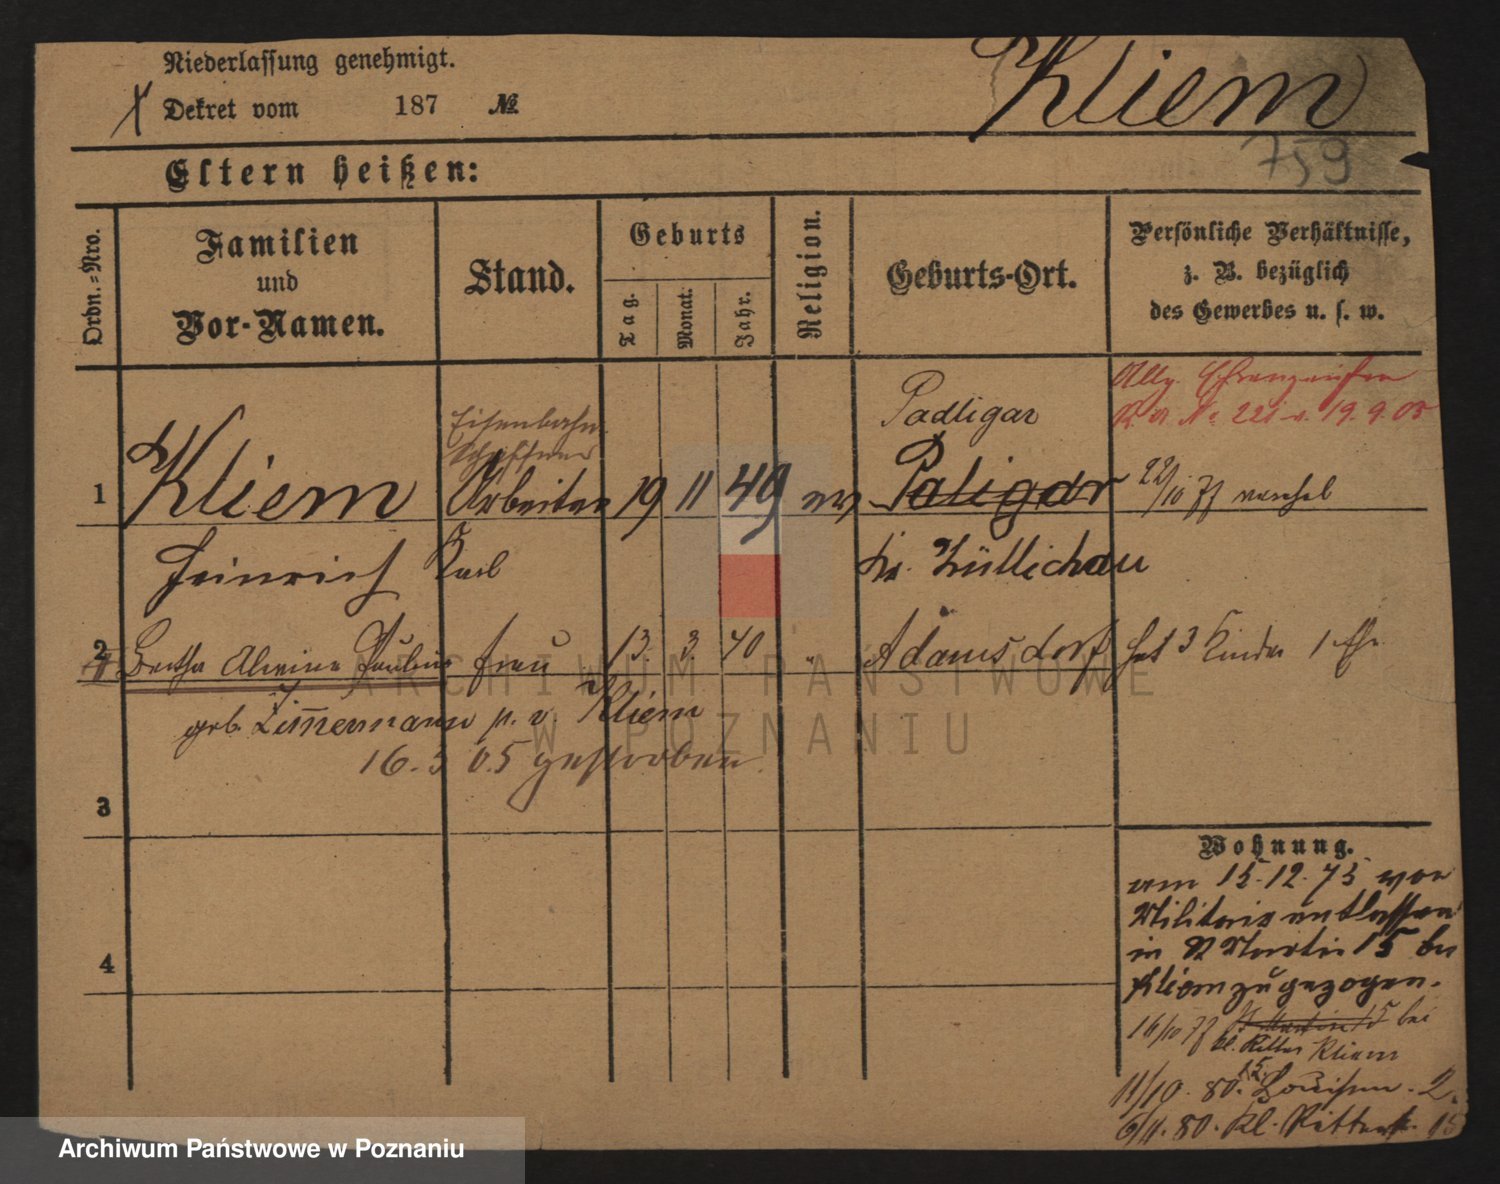 Niederlassung genehmigt.
Dekret vom 187 №
Kliem
759
Eltern heißen:
Ordn.=Nro.
Familien
und
Vor-Namen.
Stand.
Geburts
Tag.
Monat.
Jahr.
Religion.
Geburts-Ort.
Persönliche Verhältnisse,
z. B. bezüglich
des Gewerbes u. s. w.
Allg. Ehrenzeichen
No 221 v. 19. 9. 05
Eisenbahn
Schaffner
Padligar
1 Kliem Arbeiter 19 11 49 ev Paligar 22/10 77 verehel
Heinrich Karl Kr. Züllichau
2 Bertha Alwine Pauline Frau 13 3 40 " Adamsdorf hat 3 Kinder 1 Ehe
geb. Zimermann p. v. Kliem
16. 3 05 gestorben
3
Wohnung.
am 15. 12. 75 vom
Militair entlassen
in St Martin 15 bei
Kliem zugezogen.
16/10 77 St Martin 15 bei
kl. Ritter Kliem
15
11/10. 80. Louisen. 2.
6/11. 80. Kl. Ritterst. 15
4
ARCHIWUM PAŃSTWOWE
W POZNANIU
Archiwum Państwowe w Poznaniu